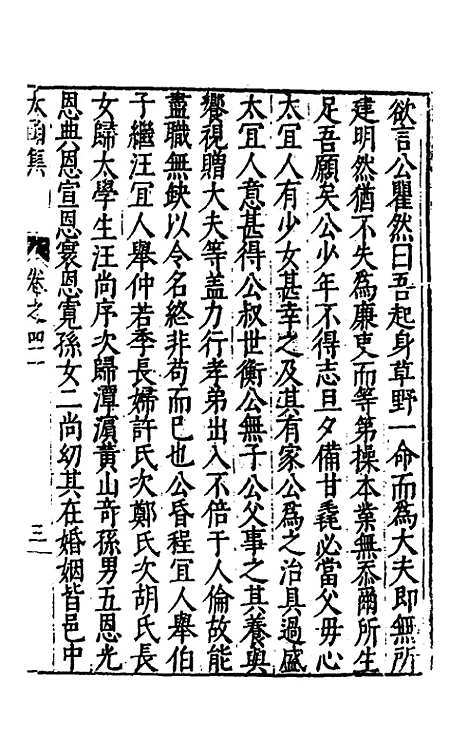 欲言公瞿然曰吾起身草野一命而為大夫即無所
建明然猶不失為廉吏而等第操本業無忝爾所生
足吾願矣公少年不得志旦夕備甘毳必當父毋心
太宜人有少女甚幸之及其有家公為之治具過盛
太宜人意甚得公叔世衡公無子公父事之其養與
饗視贈大夫等盖力行孝弟出入不倍于人倫故能
盡職無缺以令名終非苟而已也公昏程宜人舉伯
子繼汪宜人舉仲若季長婦許氏次鄭氏次胡氏長
女歸太學生汪尚序次歸潭濵黄山奇孫男五恩光
恩典恩宣恩褱恩寛孫女二尚幼其在婚姻皆邑中
太函集
卷之四二
三